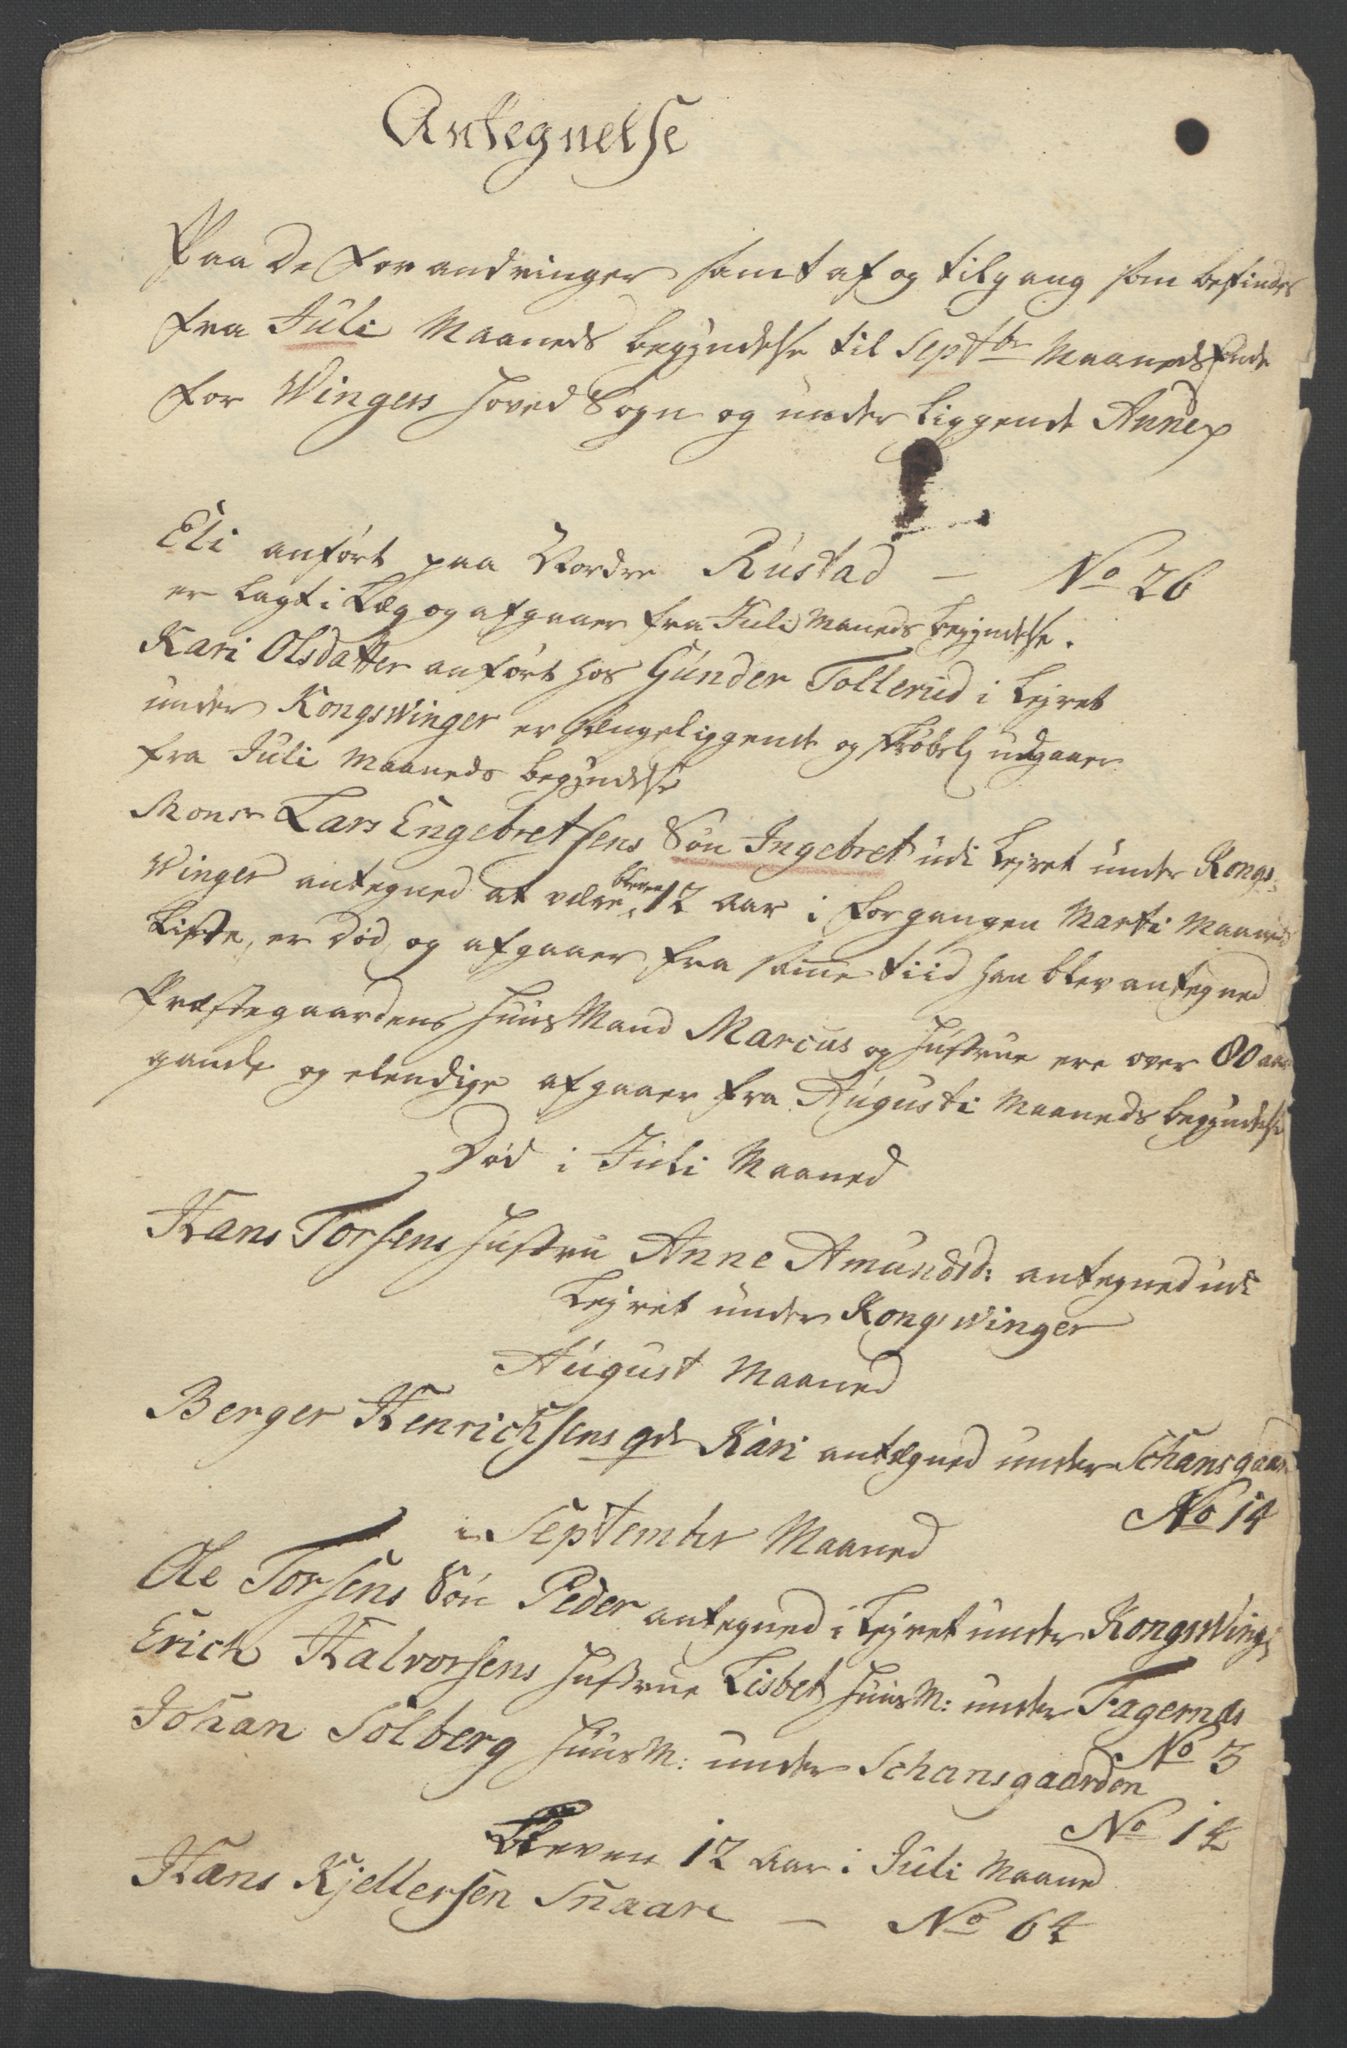 Antegnelse
Paa De Forandringer samt af og tilgang som befindes
fra Juli Maaneds begyndelse til Septbr Maaneds Ende
for Wingers Hoved Sogn og underliggende Annex
Eli anført paa Nordre Rustad — No 26
er lagt i Læg og afgaaer fra Juli Maneds begyndelse.
Kari Olsdatter anført hos Gunder Tollerud i Lejret
under Kongswinger er sengeliggende og skrøbel: udgaaer
fra Juli Maaneds begyndelse
Monsr Lars Engebretsens Søn Ingebret udi Lejret under Kongs-
Winger antegned at være bleven 12 Aar i forgangen Marti Maaneds
Liste, er Død og afgaaer fra samme tiid han blev antegned
Præstegaardens HuusMand Marcus og Hustrue ere over 80 aar
gamle og elendige afgaaer fra Augusti Maaneds begyndelse
Død i Juli Maaned
Hans Torsens Hustru Anne Amundsd: antegned udi
Lejret under Kongswinger
August Maaned
Berger Henrichsens gdr Kari antegned under Schansgaar
No 14
i September Maaned
Ole Torsens Søn Peder antegned i Lejret under KongsWing:
Erich Halvorsens Hustrue Lisbet HuusM: under Fagernæs
No 3
Johan Solberg HuusM: under Schansgaarden
No 14
Bleven 12 Aar i Juli Maaned
Hans Kjellersen Snaare — No 64